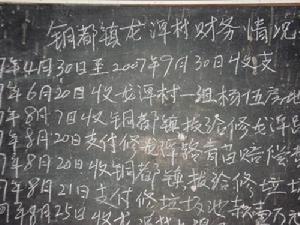 铜都镇龙潭村财务情况
7年4月30日至2007年9月30日收支
7年6月20日收龙潭村一组杨伍
年8月7日收铜都镇拨给修龙潭
年8月20日支付修龙潭路青苗赔偿
年8月20日收铜都镇拨给修垃圾
年8月21日支付修垃圾池款壹万
年9月25日收龙